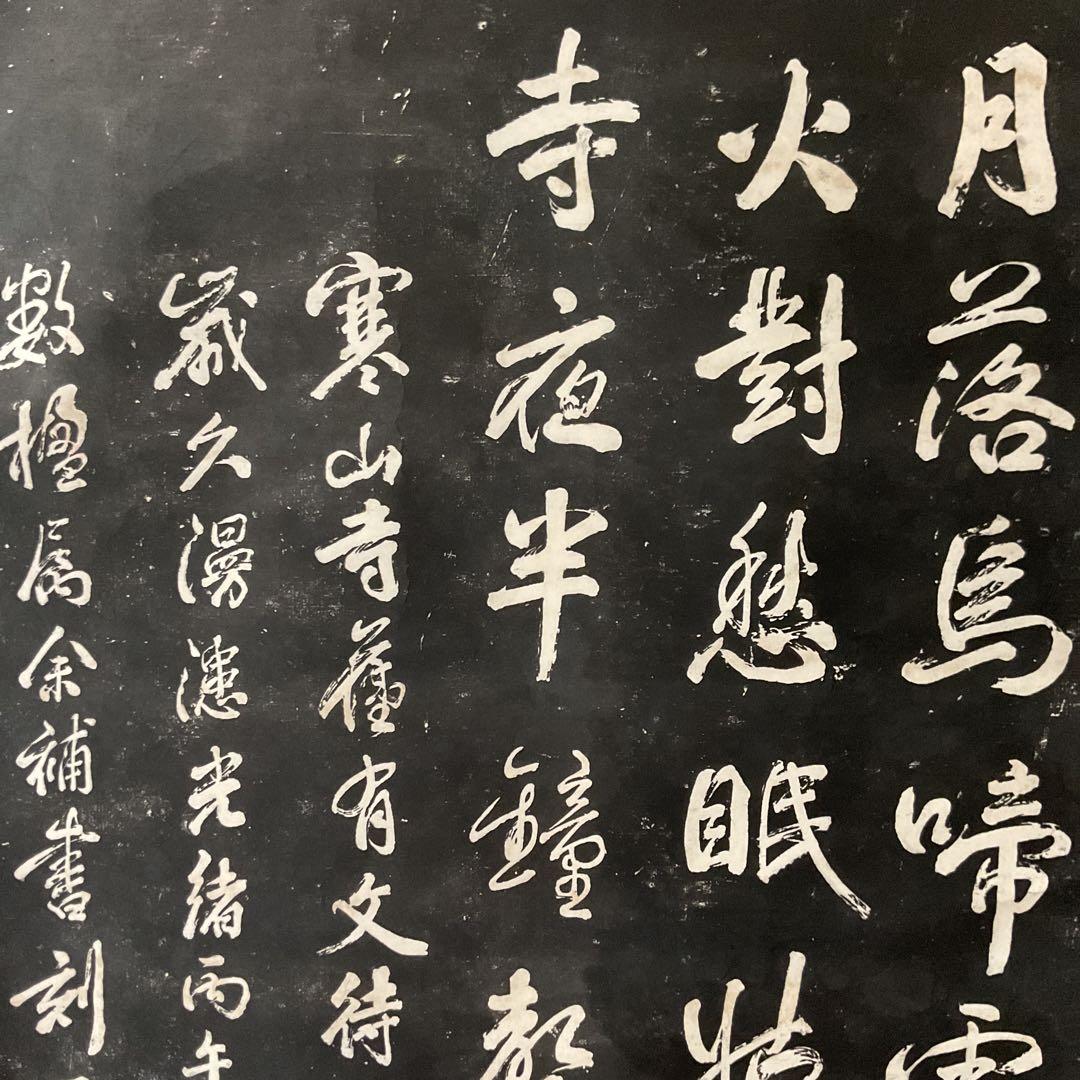 月落烏啼
火對愁眠姑
寺夜半鐘聲
寒山寺舊有文待
歲久漫漶光緒丙午
數楹屬余補書刻